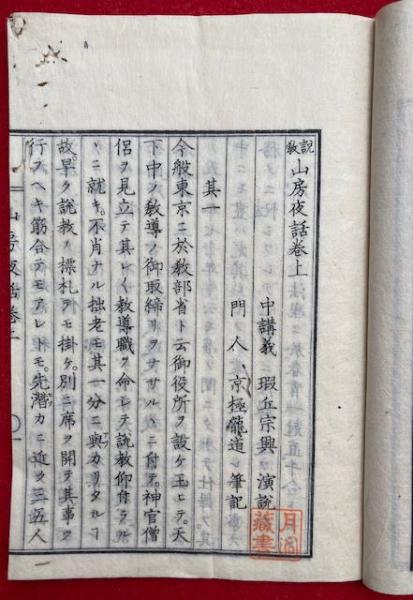 説教 山房夜話巻上
中講義 瑕丘宗興 演説
門人 京極龍道 筆記
其一
今般東京ニ於教部省ト云御役所ヲ設ケ玉ヒテ。天
下中ノ教導ノ御取締リヲナサルヽニ付テ。神官僧
侶ヲ見立テ其レ〱教導職ヲ命レテ。説教仰付ラル
ヽニ就キ。不肖ナル拙老モ其一分ニ與カリタルヿ
故。早ク説教ノ標札ヲモ掛ケ。別ニ席ヲ開テ其事ヲ
行フヘキ筋合テモアレ𪜈モ。先潜カニ近ヨ三五人
山房夜話巻上
月
蔵書